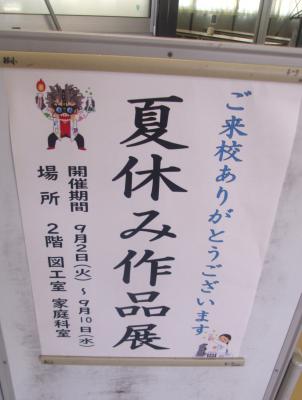 ご来校ありがとうございます
夏休み作品展
開催期間 9月2日(火)～9月10日(水)
場所 2階 図工室 家庭科室